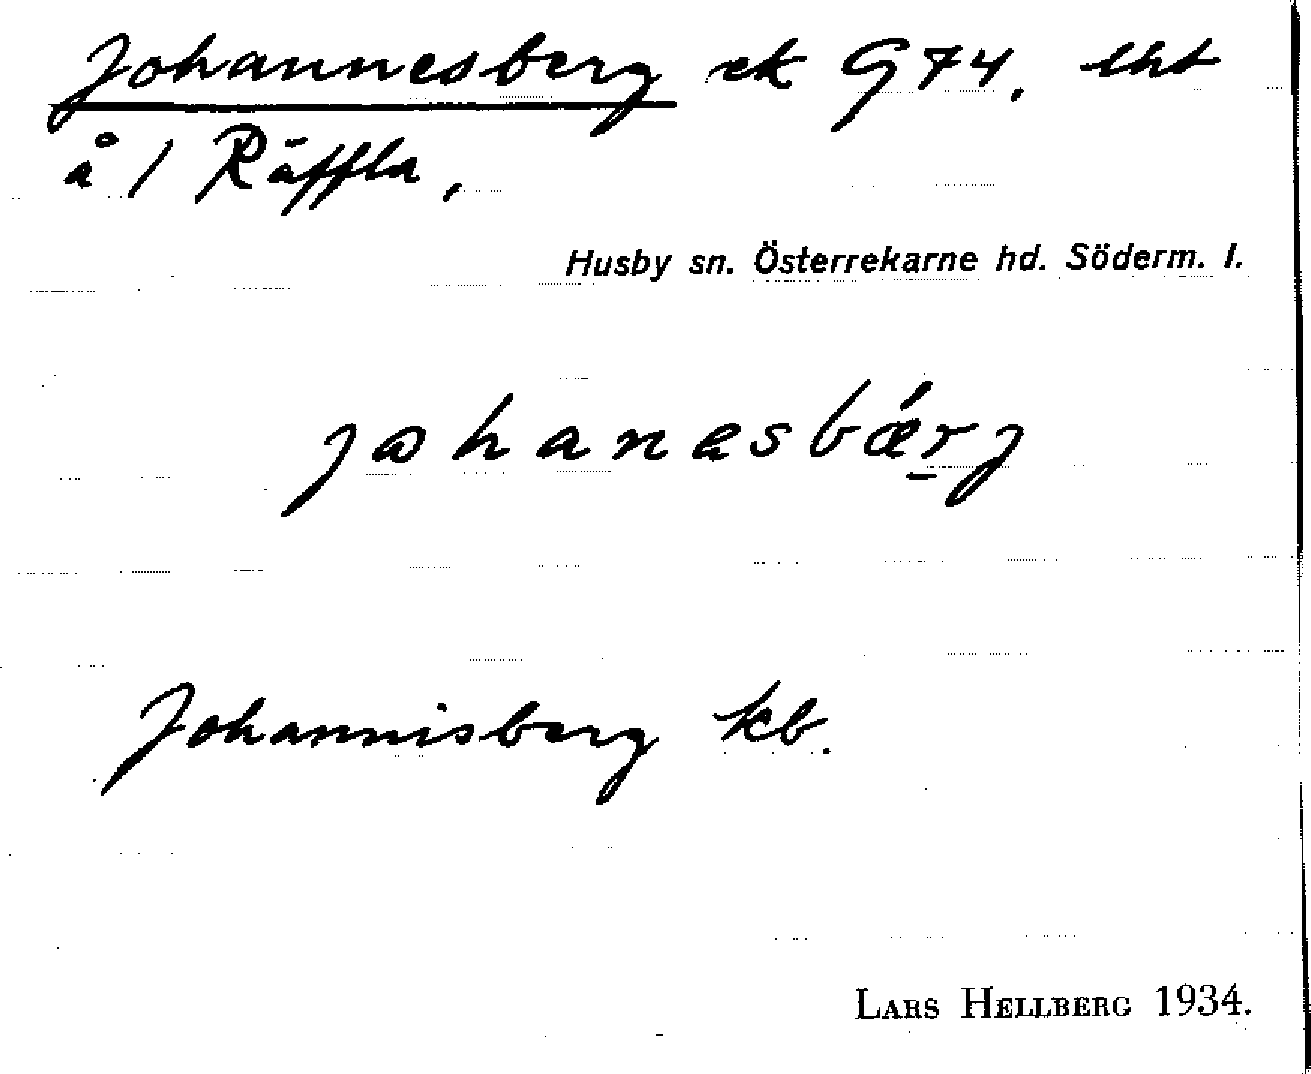 Johannesberg ek G74, lht
å 1 Räffla,
Husby sn. Österrekarne hd. Söderm. l.
johanesbǽrj
Johannisberg kb.
LARS HELLBERG 1934.